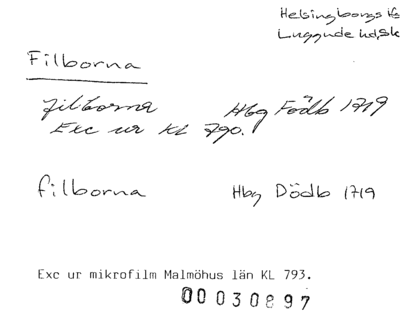 Helsingborgs lfs
Luggude hd, Sk
Filborna
filborna Hbg Födb 1719
Exc ur KL 790.
filborna Hbg Dödb 1719
Exc ur mikrofilm Malmöhus län KL 793.
00030897